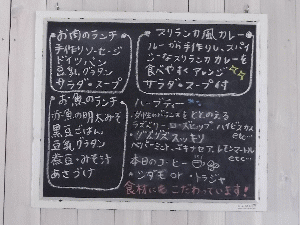 お肉のランチ
手作りソーセージ
ドイツパン
豆乳グラタン
サラダ・スープ
スリランカ風カレー
ルーから手作りし、スパイ
シーなスリランカカレーを
食べやすくアレンジ
サラダ・スープ付
お魚のランチ
赤魚の明太みそ
黒豆ごはん
豆乳グラタン
煮豆・みそ汁
あさづけ
ハーブティー
女性のバランスをととのえる
ラズベリー ローズヒップ ハイビスカス
etc…
スッキリ
ペパーミント レモンマートル
etc…
本日のコーヒー
シダモ or トラジャ
食材にもこだわっています!